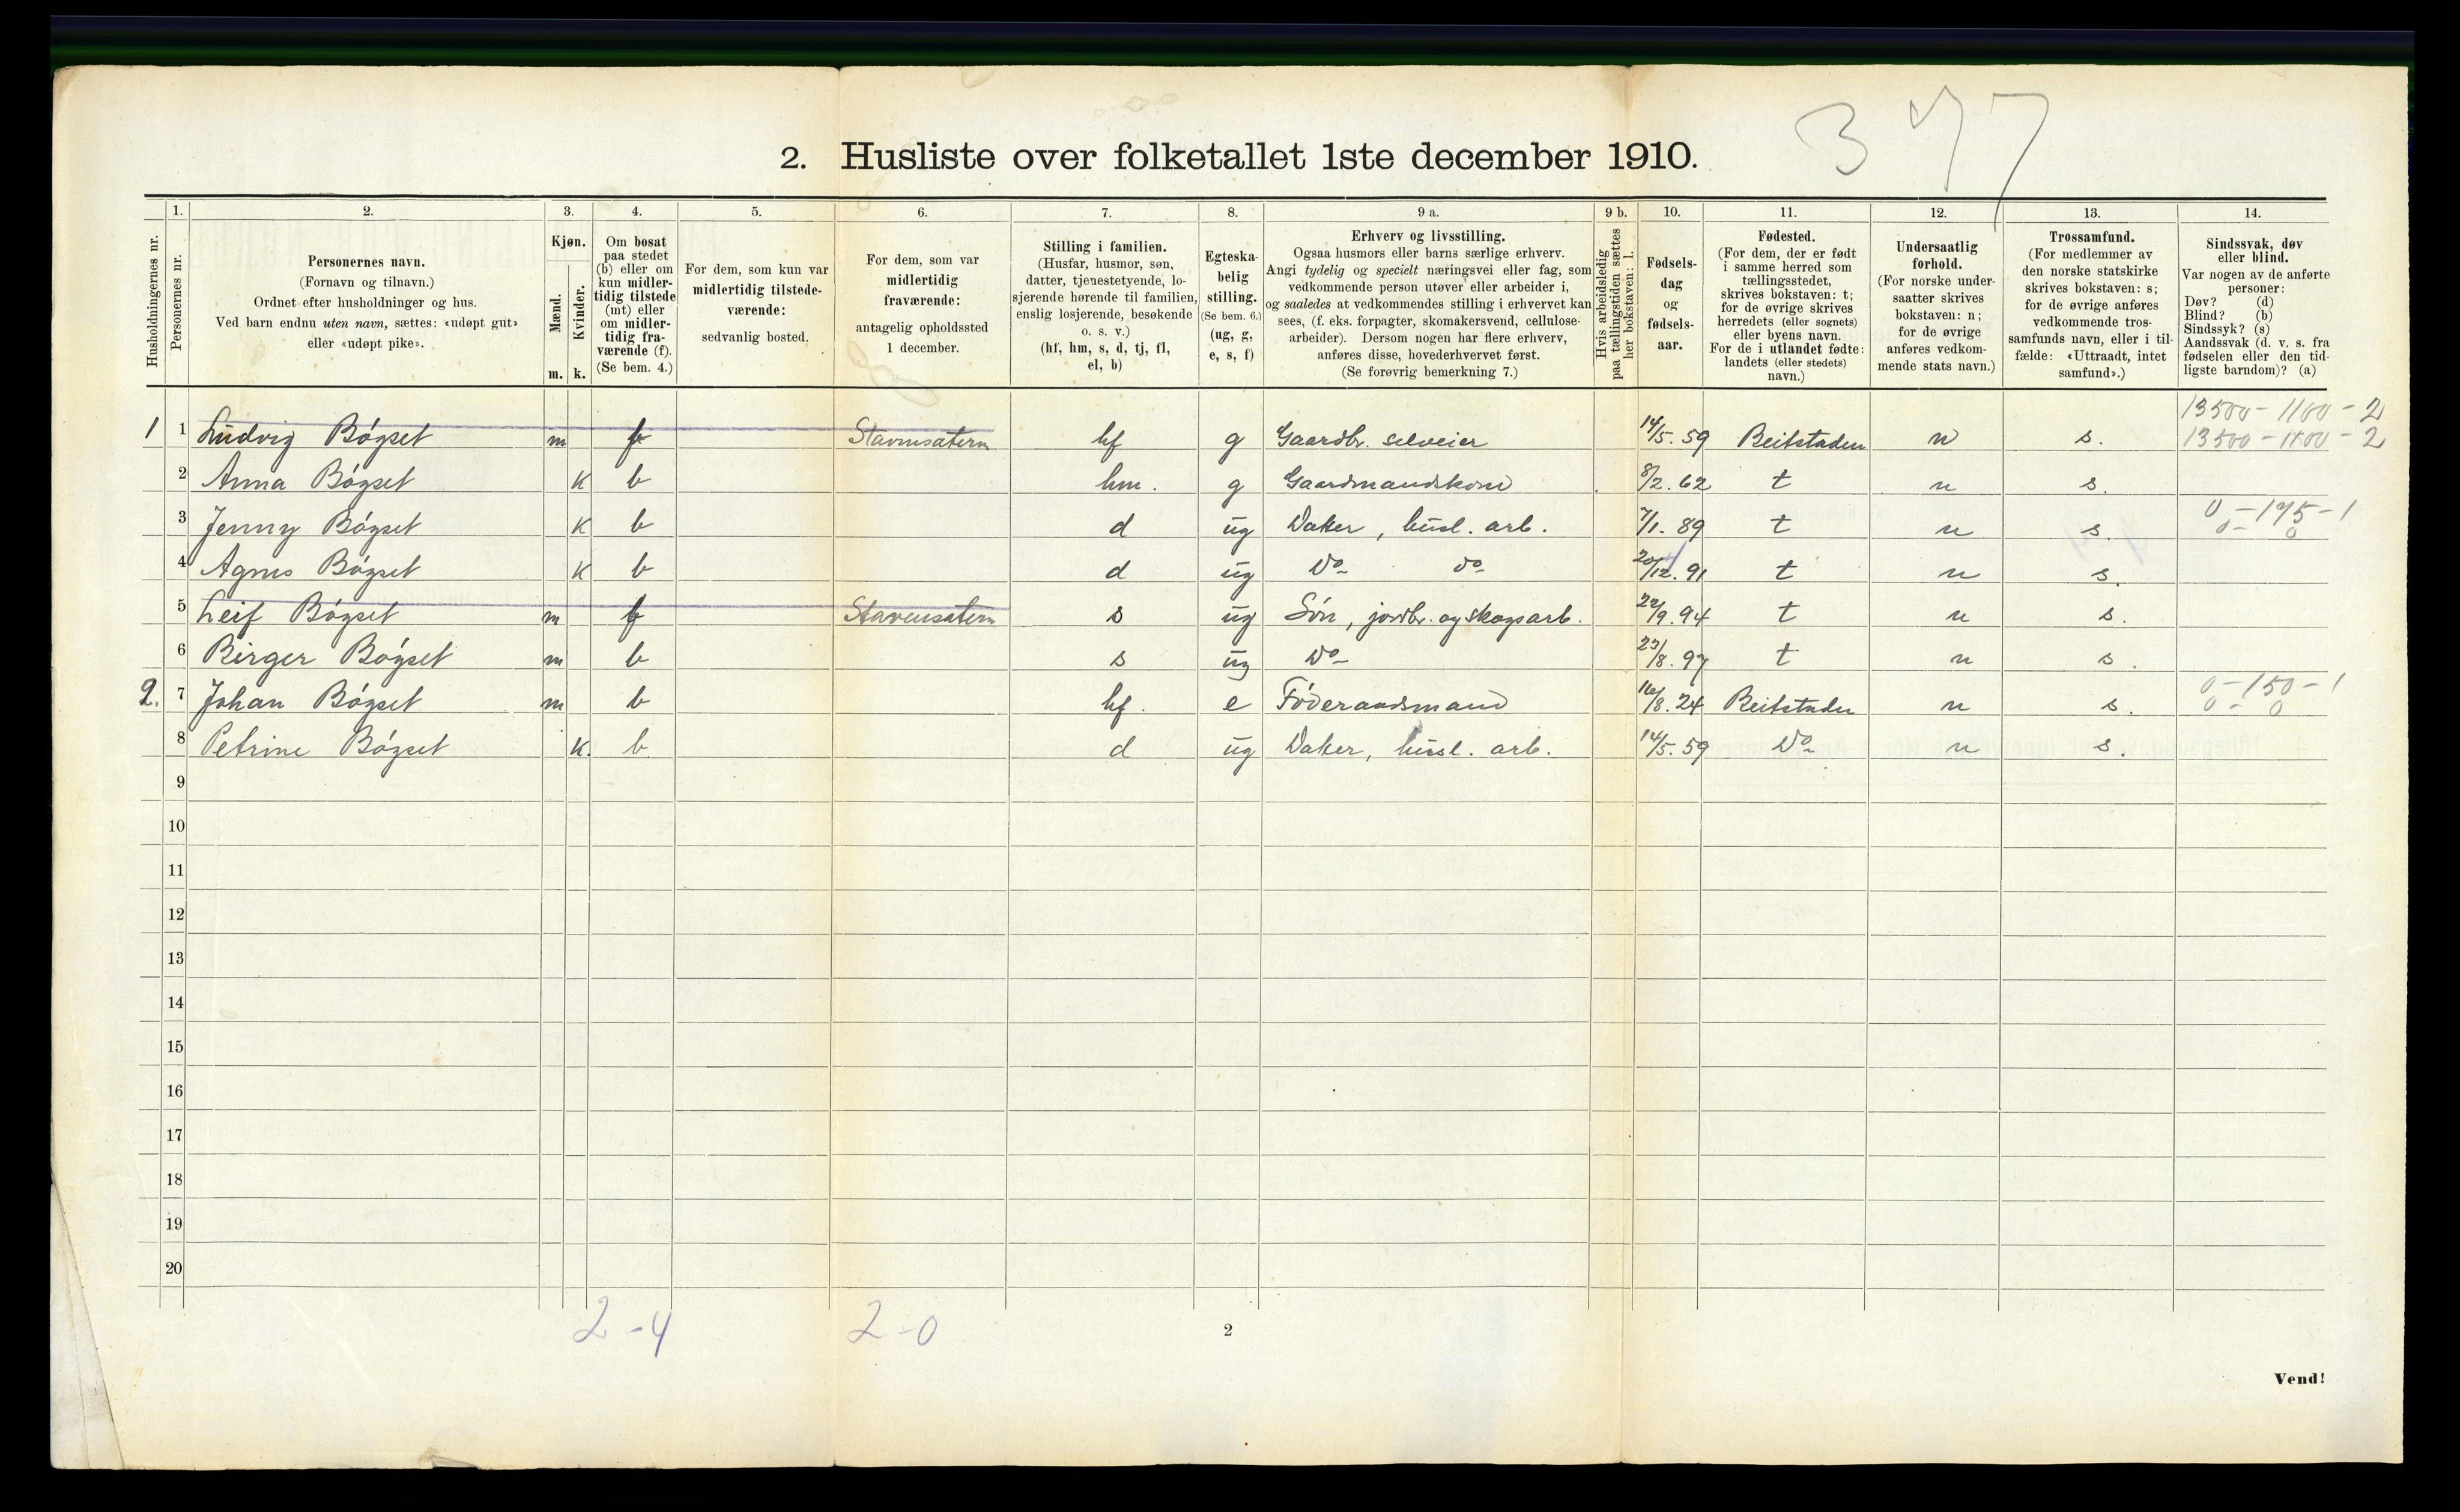 377
2. Husliste over folketallet 1ste december 1910.
Husholdningernes nr.
1. Personernes nr.
2. Personernes navn. (Fornavn og tilnavn.) Ordnet efter husholdninger og hus. Ved barn endnu uten navn, sættes: «udøpt gut» eller «udøpt pike».
3. Kjøn. Mænd. m. Kvinder. k.
4. Om bosat paa stedet (b) eller om kun midlertidig tilstede (mt) eller om midlertidig fraværende (f). (Se bem. 4.)
5. For dem, som kun var midlertidig tilstedeværende: sedvanlig bosted.
6. For dem, som var midlertidig fraværende: antagelig opholdssted 1 december.
7. Stilling i familien. (Husfar, husmor, søn, datter, tjenestetyende, losjerende hørende til familien, enslig losjerende, besøkende o. s. v.) (hf, hm, s, d, tj, fl, el, b)
8. Egteskabelig stilling. (Se bem. 6.) (ug, g, e, s, f)
9 a. Erhverv og livsstilling. Ogsaa husmors eller barns særlige erhverv. Angi tydelig og specielt næringsvei eller fag, som vedkommende person utøver eller arbeider i, og saaledes at vedkommendes stilling i erhvervet kan sees, (f. eks. forpagter, skomakersvend, cellulosearbeider). Dersom nogen har flere erhverv, anføres disse, hovederhvervet først. (Se forøvrig bemerkning 7.)
9 b. Hvis arbeidsledig paa tællingstiden sættes her bokstaven: l.
10. Fødselsdag og fødselsaar.
11. Fødested. (For dem, der er født i samme herred som tællingsstedet, skrives bokstaven: t; for de øvrige skrives herredets (eller sognets) eller byens navn. For de i utlandet fødte: landets (eller stedets) navn.)
12. Undersaatlig forhold. (For norske undersaatter skrives bokstaven: n; for de øvrige anføres vedkommende stats navn.)
13. Trossamfund. (For medlemmer av den norske statskirke skrives bokstaven: s; for de øvrige anføres vedkommende trossamfunds navn, eller i tilfælde: «Uttraadt, intet samfund».)
14. Sindssvak, døv eller blind. Var nogen av de anførte personer: Døv? (d) Blind? (b) Sindssyk? (s) Aandssvak (d. v. s. fra fødselen eller den tidligste barndom)? (a)
13500 - 1100 - 2
1 1 Ludvig Bógset m f Stavnsatern hf g Gaardbr. selveier 14/5. 59 Beitstaden n s. 13500 - 1100 - 2
2 Anna Bógset k b hm. g Gaardmandskone 8/2. 62 t n s.
3 Jenny Bógset k b d ug Datter, husl. arb. 7/1. 89 t n s. 0 - 175 - 1
0 - 0
4 Agnes Bógset k b d ug Do do 20/12. 91 t n s.
5 Leif Bógset m f Stavensatern s ug Søn, jordbr. og skogsarb. 22/9. 94 t n s.
6 Birger Bógset m b s ug Do 23/8. 97 t n s.
2. 7 Johan Bógset m b hf. e Føderaadsmand 16/8. 24 Beitstaden n s. 0 - 150 - 1
0 - 0
8 Petrine Bógset k. b d ug Datter, husl. arb. 14/5. 59 Do n s.
9
10
11
12
13
14
15
16
17
18
19
20
2 - 4 2 - 0
2
Vend!